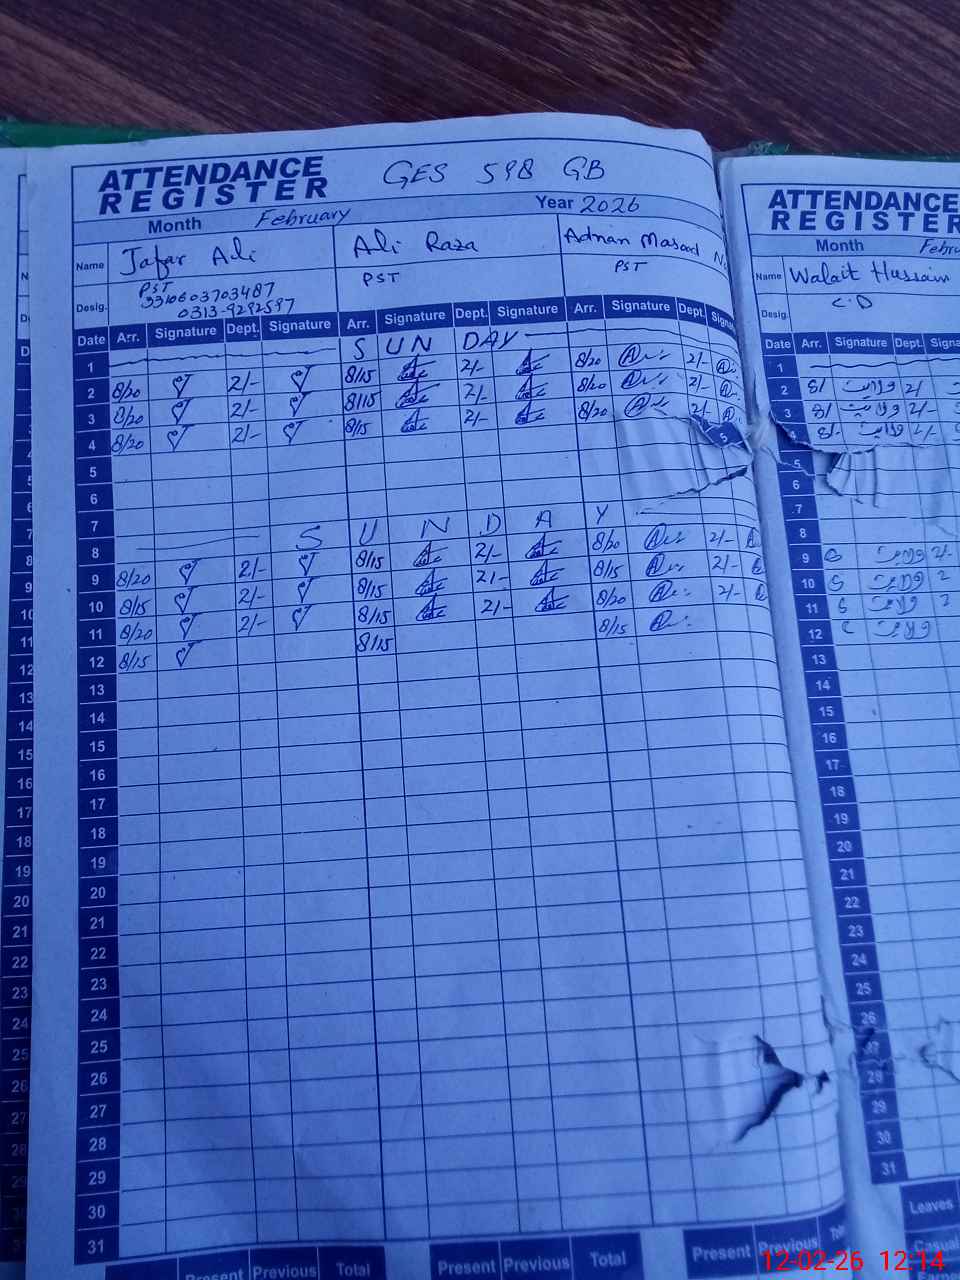 ATTENDANCE REGISTER GES 598 GB
Month February Year 2026
Name Jafar Ali Ali Raza Adnan Masood
Desig. PST PST PST
3310603703487
0313-9292597
Date Arr. Signature Dept. Signature Arr. Signature Dept. Signature Arr. Signature Dept.
1 SUNDAY
2 8/20 2/- 8/15 2/- 8/20 2/-
3 8/20 2/- 8/15 2/- 8/20 2/-
4 8/20 2/- 8/15 2/- 8/20 2/-
5
6
7
8 SUNDAY
9 8/20 2/- 8/15 2/- 8/20 2/-
10 8/15 2/- 8/15 2/- 8/15 2/-
11 8/20 2/- 8/15 2/- 8/20 2/-
12 8/15 8/15 8/15
13
14
15
16
17
18
19
20
21
22
23
24
25
26
27
28
29
30
31
Present Previous Total Present Previous Total Present Previous
ATTENDANCE
REGISTER
Month
Name Walait Hussain
Desig. C.D
Date Arr. Signature Dept.
1
2 8/ ولایت 2/-
3 8/ ولایت 2/-
4 8/- ولایت
5
6
7
8
9 ولایت 2/-
10 ولایت 2
11 ولایت 2
12 ولایت
13
14
15
16
17
18
19
20
21
22
23
24
25
26
27
28
29
30
31
Leaves
Casual
12-02-26 12:14